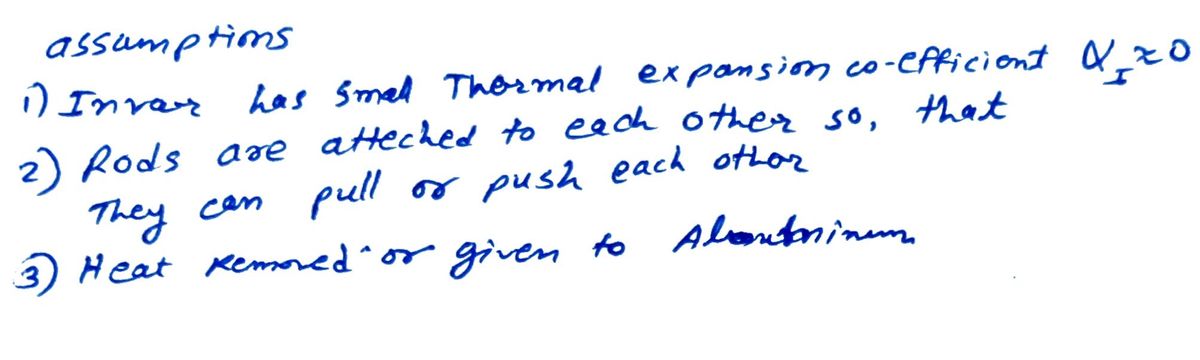 assumptions
1) Invar has small Thermal expansion co-efficient α_I ≈ 0
2) Rods are atteched to each other so, that
They can pull or push each other
3) Heat removed or given to